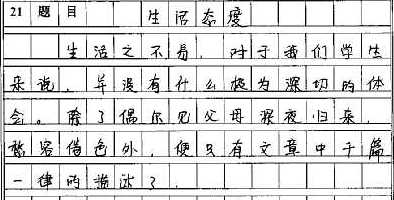 21 题目 生活态度
生活之不易，对于我们学生
来说，并没有什么极为深切的体
会。除了偶尔见父母深夜归来，
愁容倦色外，便只有文章中千篇
一律的描述了。